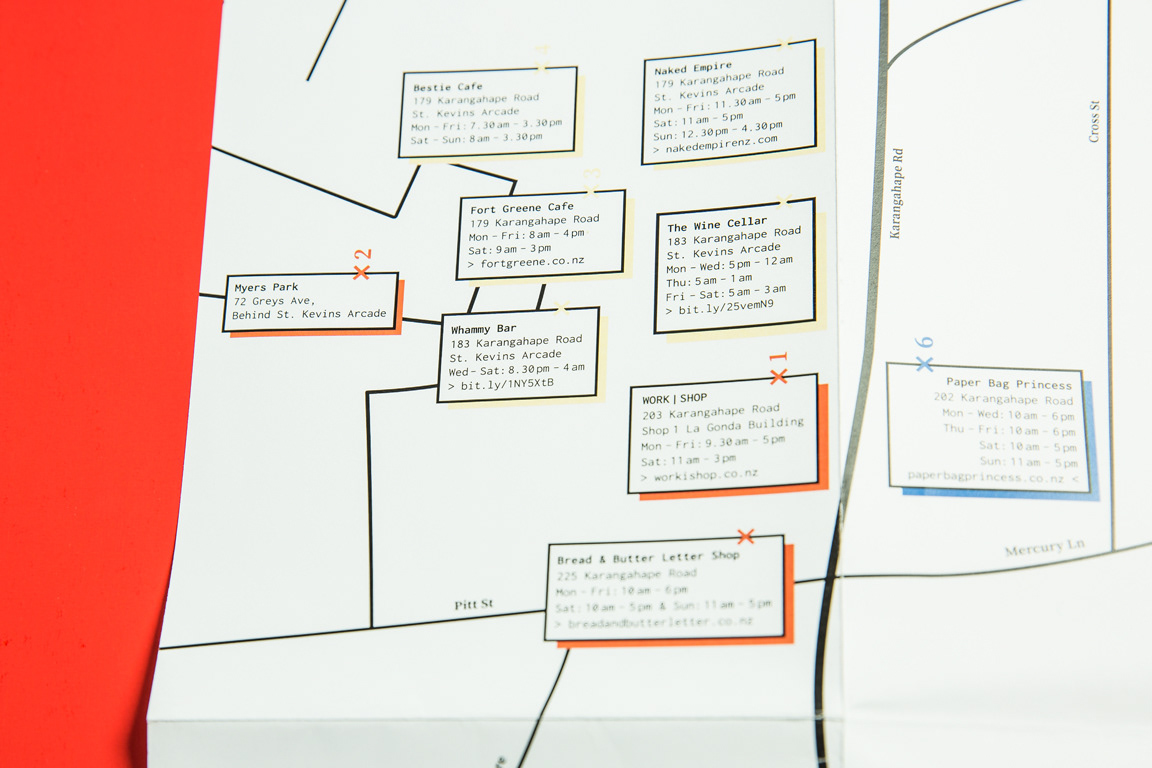 4
Bestie Cafe
179 Karangahape Road
St. Kevins Arcade
Mon – Fri: 7.30am – 3.30pm
Sat – Sun: 8am – 3.30pm
Naked Empire
179 Karangahape Road
St. Kevins Arcade
Mon – Fri: 11.30am – 5pm
Sat: 11am – 5pm
Sun: 12.30pm – 4.30pm
> nakedempirenz.com
3
Fort Greene Cafe
179 Karangahape Road
Mon – Fri: 8am – 4pm
Sat: 9am – 3pm
> fortgreene.co.nz
The Wine Cellar
183 Karangahape Road
St. Kevins Arcade
Mon – Wed: 5pm – 12am
Thu: 5am – 1am
Fri – Sat: 5am – 3am
> bit.ly/25vemN9
2
Myers Park
72 Greys Ave,
Behind St. Kevins Arcade
Whammy Bar
183 Karangahape Road
St. Kevins Arcade
Wed – Sat: 8.30pm – 4am
> bit.ly/1NY5XtB
1
WORK | SHOP
203 Karangahape Road
Shop 1 La Gonda Building
Mon – Fri: 9.30am – 5pm
Sat: 11am – 3pm
> workishop.co.nz
Bread & Butter Letter Shop
225 Karangahape Road
Mon – Fri: 10am – 6pm
Sat: 10am – 5pm & Sun: 11am – 5pm
> breadandbutterletter.co.nz
Pitt St
Karangahape Rd
Cross St
6
Paper Bag Princess
202 Karangahape Road
Mon – Wed: 10am – 6pm
Thu – Fri: 10am – 6pm
Sat: 10am – 5pm
Sun: 11am – 5pm
paperbagprincess.co.nz <
Mercury Ln